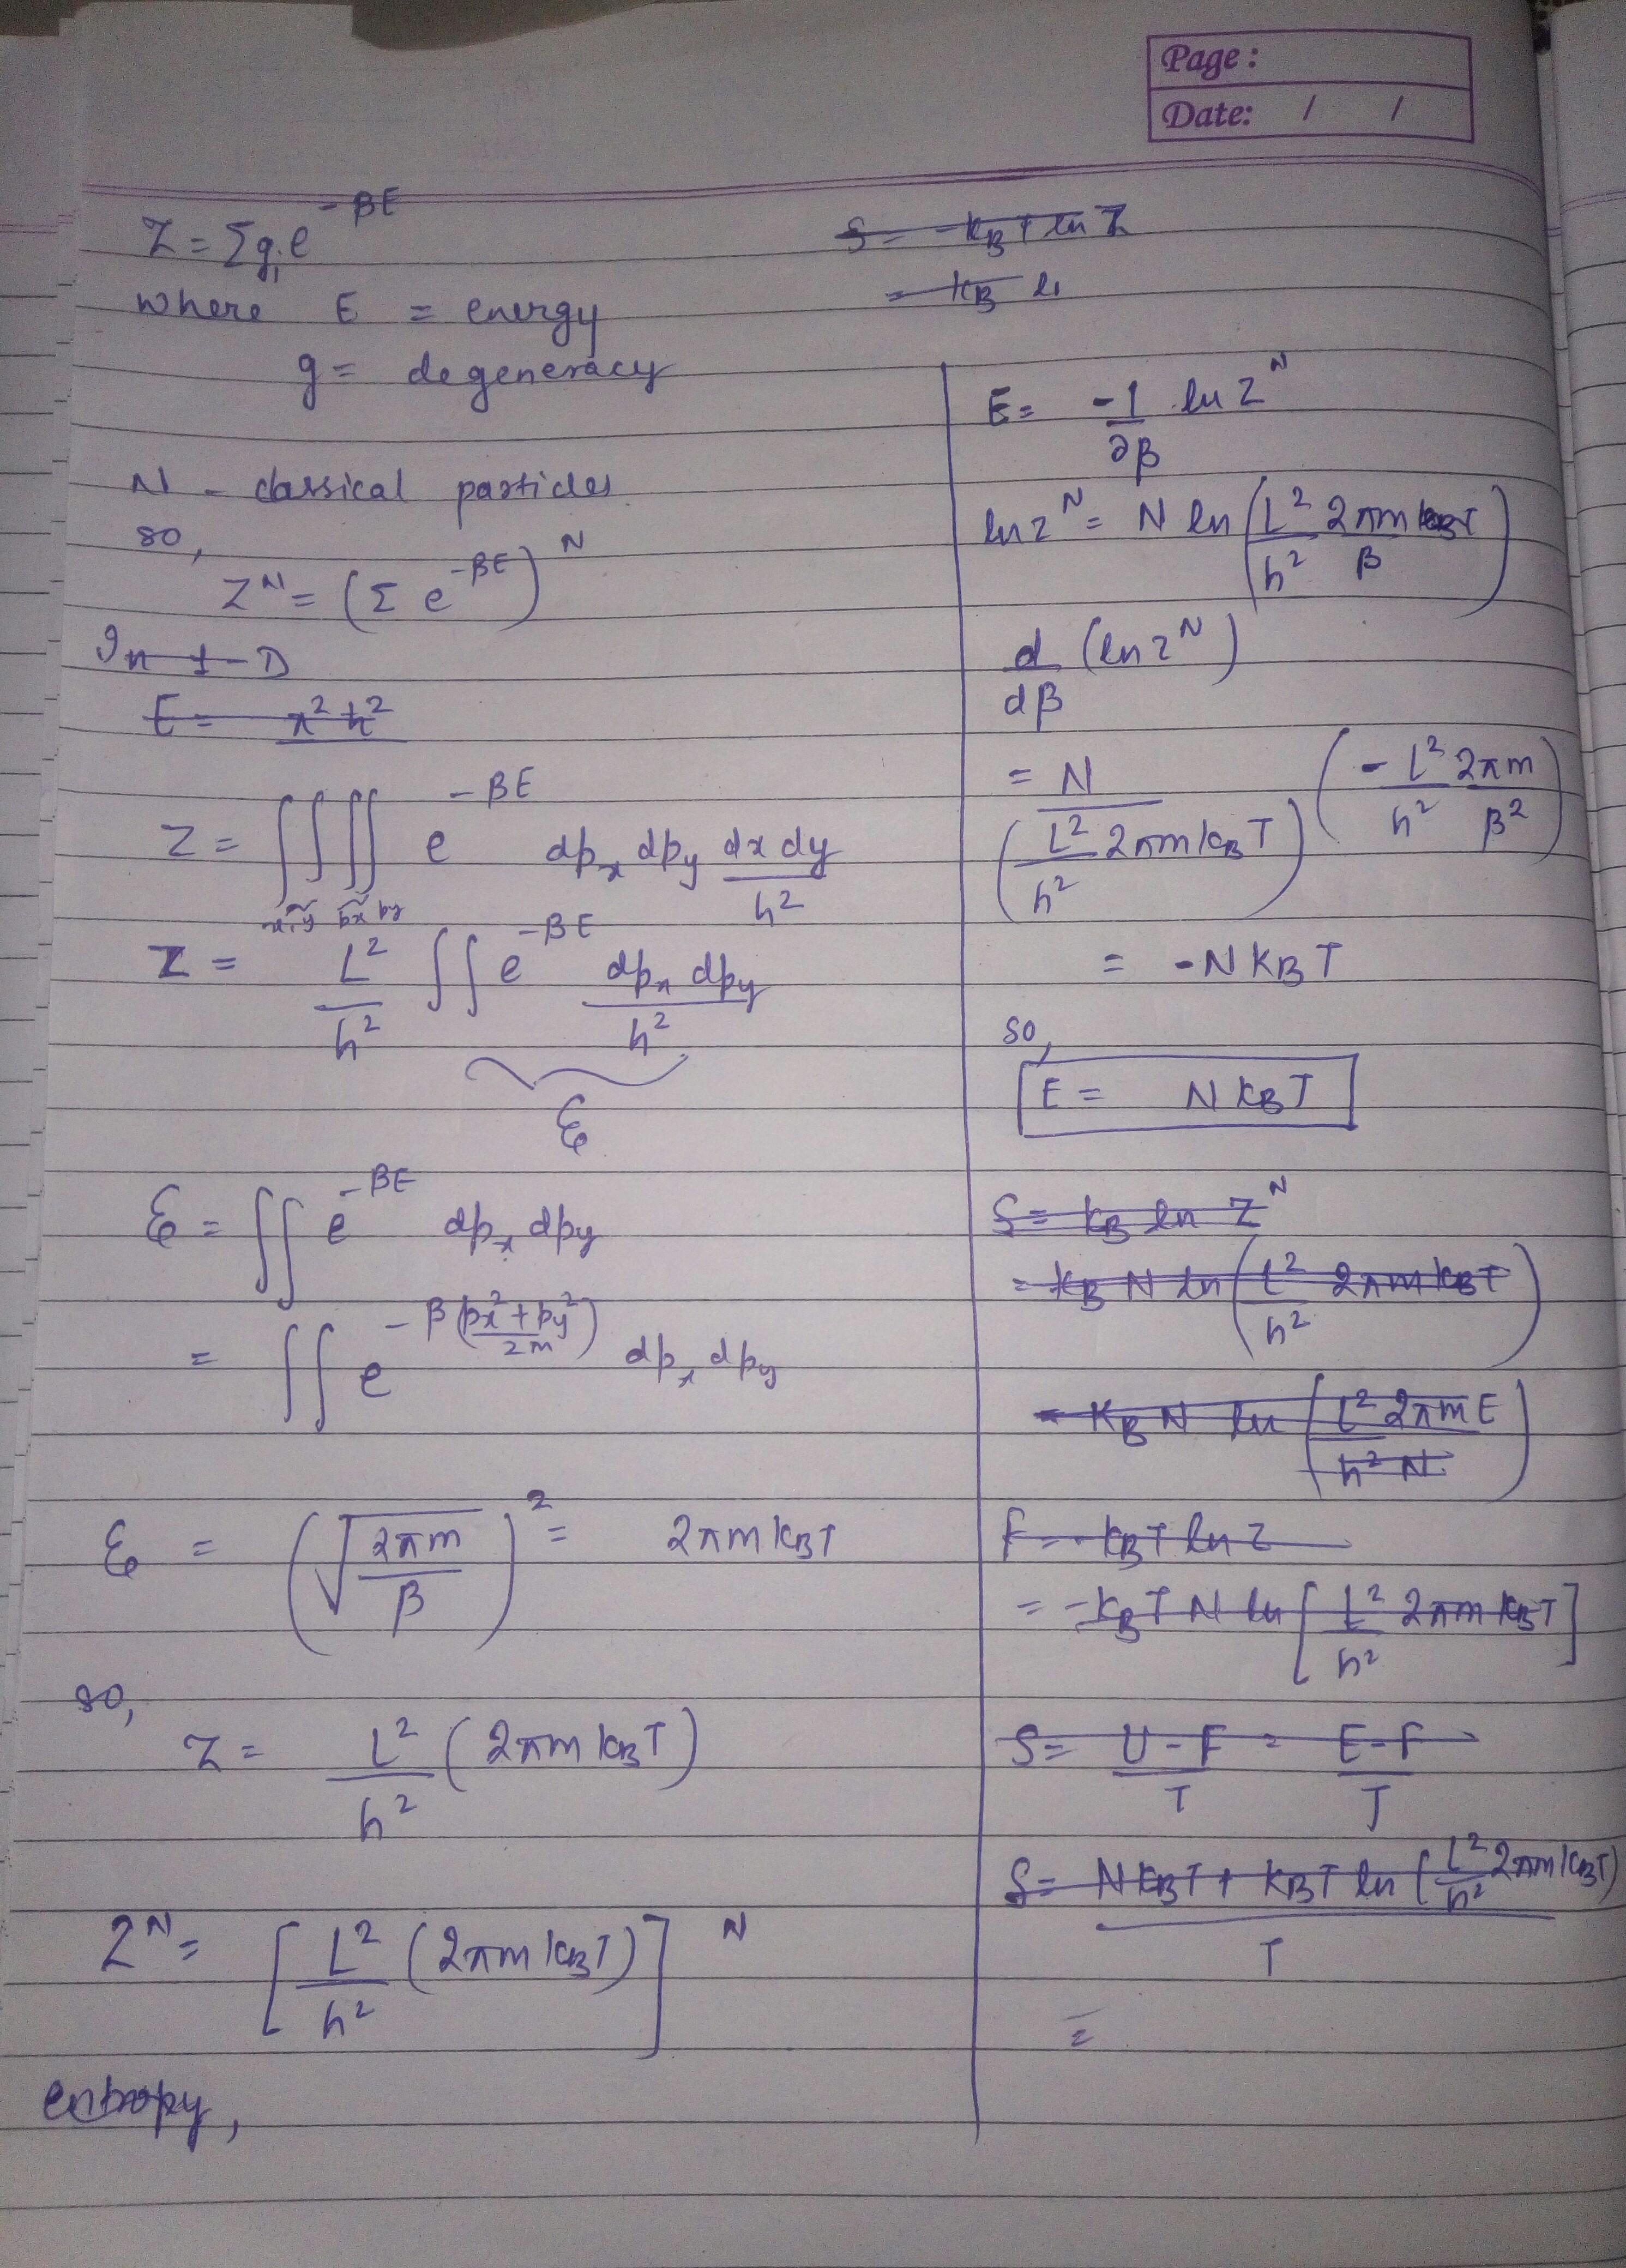 Page :
Date: / /
Z = Σg_i e^{-βE}
where E = energy
g = degeneracy
N - classical particles
so,
Z^N = (Σ e^{-βE})^N
In 1-D
E = π²ħ²
Z = ∫∫∫∫ e^{-βE} dp_x dp_y dx dy / h²
x, y p_x p_y
Z = L²/h² ∫∫ e^{-βE} dp_x dp_y / h²
ξ
ξ = ∫∫ e^{-βE} dp_x dp_y
= ∫∫ e^{-β(p_x² + p_y² / 2m)} dp_x dp_y
ξ = (√(2πm/β))² = 2πm k_B T
so,
Z = L²/h² (2πm k_B T)
Z^N = [L²/h² (2πm k_B T)]^N
entropy,
S = -k_B T ln Z
= k_B
E = -1/∂β ln Z^N
ln Z^N = N ln (L²/h² 2πm/β)
d/dβ (ln Z^N)
= N / (L²/h² 2πm k_B T) (-L²/h² 2πm/β²)
= -N K_B T
so,
E = N K_B T
S = k_B ln Z^N
= k_B N ln (L²/h² 2πm k_B T)
= K_B N ln (L² 2πm E / h² N)
F = -k_B T ln Z
= -k_B T N ln [L²/h² 2πm k_B T]
S = U-F/T = E-F/T
S = N k_B T + k_B T ln (L²/h² 2πm k_B T) / T
=